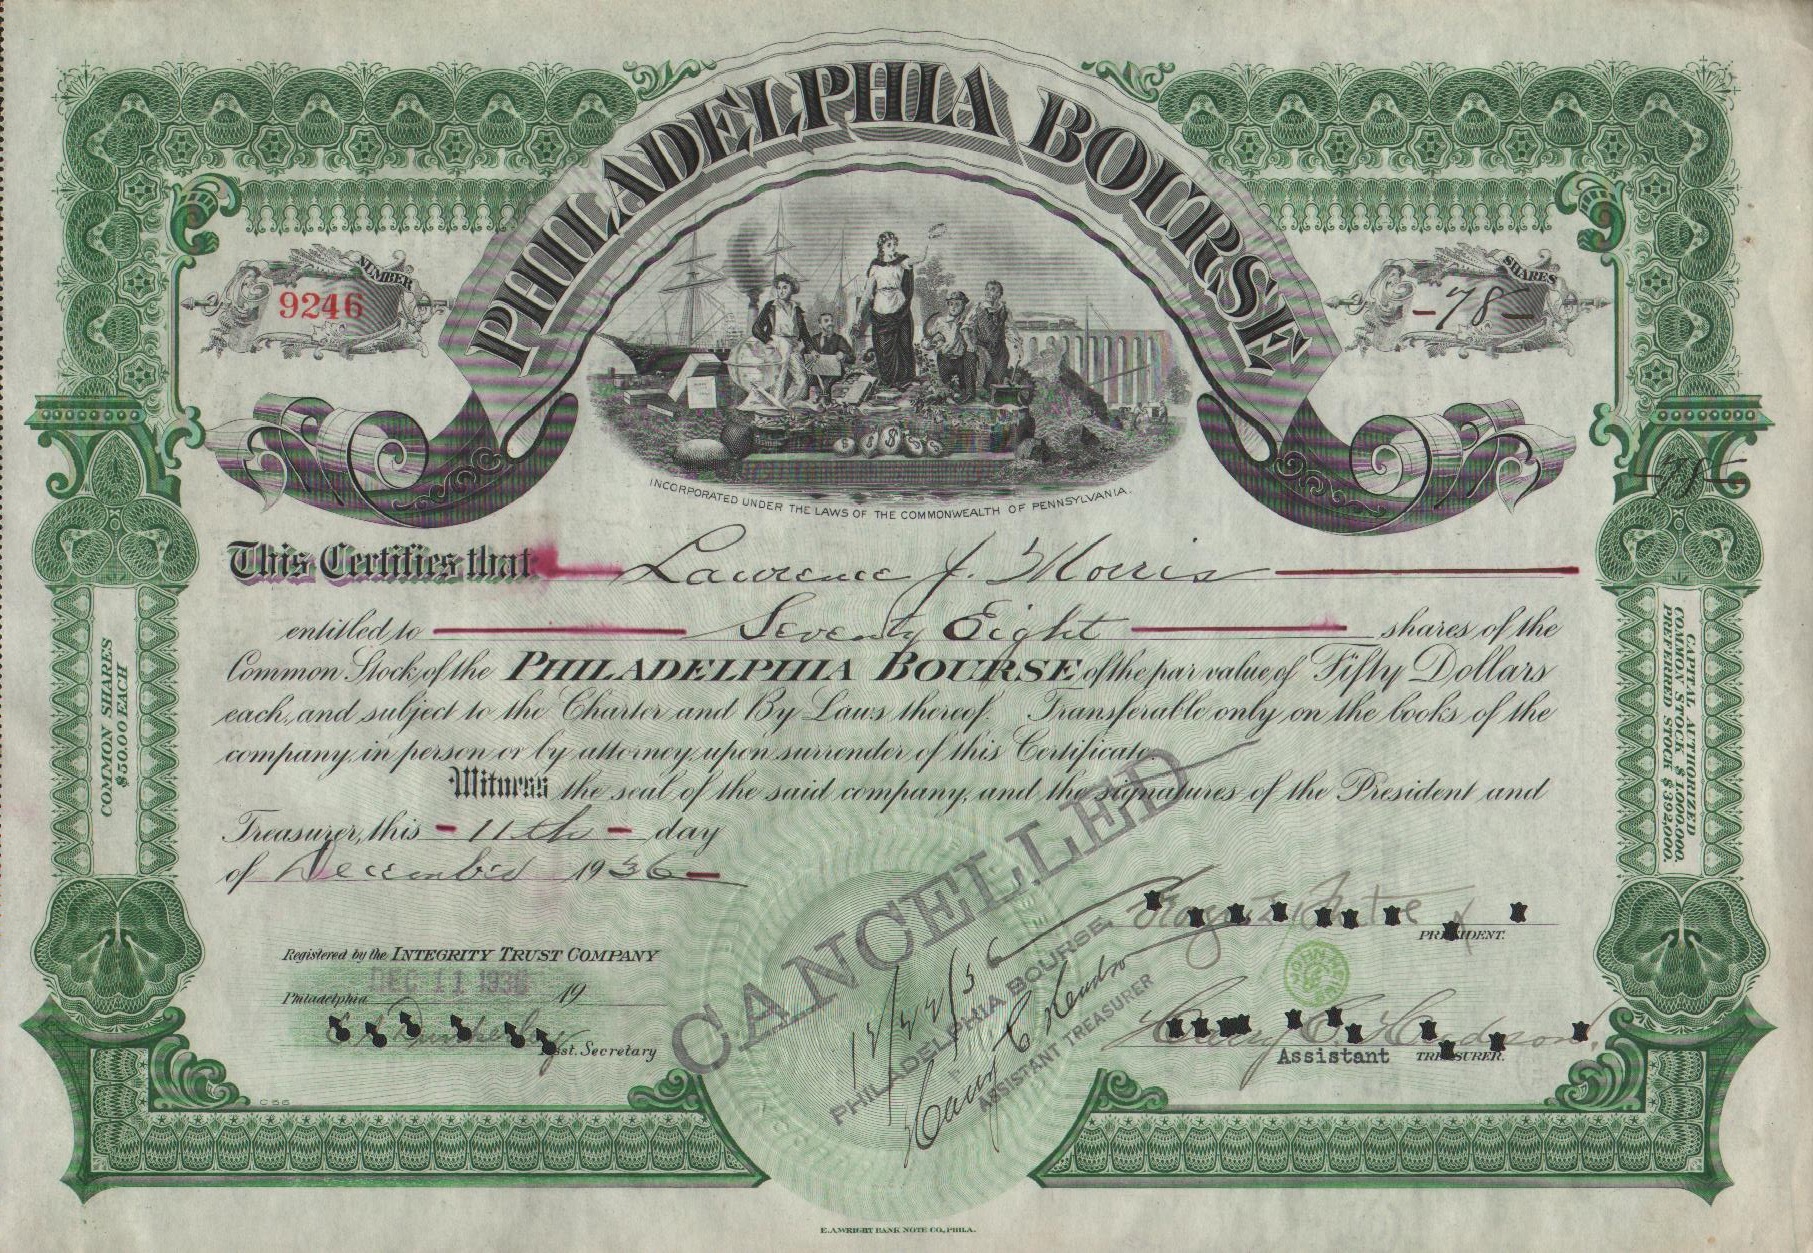 PHILADELPHIA BOURSE
NUMBER
9246
SHARES
-78-
INCORPORATED UNDER THE LAWS OF THE COMMONWEALTH OF PENNSYLVANIA.
-78-
This Certifies that Lawrence J. Morris
entitled to Seventy Eight shares of the
Common Stock of the PHILADELPHIA BOURSE of the par value of Fifty Dollars
each, and subject to the Charter and By Laws thereof. Transferable only on the books of the
company, in person or by attorney, upon surrender of this Certificate
Witness the seal of the said company, and the signatures of the President and
Treasurer, this - 11th - day
of December 1936
COMMON SHARES
$50.00 EACH
CAPITAL AUTHORIZED
COMMON STOCK $1,000,000.
PREFERRED STOCK $392,000.
CANCELLED
12/22/36
PHILADELPHIA BOURSE,
ASSISTANT TREASURER
PRESIDENT.
Registered by the INTEGRITY TRUST COMPANY
DEC 11 1936
Philadelphia 19
Asst. Secretary
Assistant TREASURER.
E.A.WRIGHT BANK NOTE CO., PHILA.